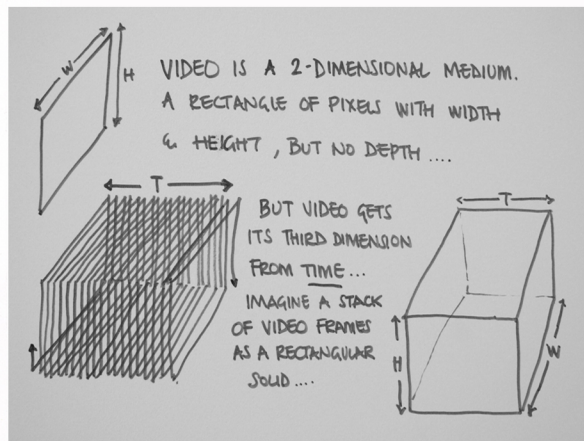 W
H
VIDEO IS A 2-DIMENSIONAL MEDIUM.
A RECTANGLE OF PIXELS WITH WIDTH
& HEIGHT, BUT NO DEPTH ....
T
BUT VIDEO GETS
ITS THIRD DIMENSION
FROM TIME...
IMAGINE A STACK
OF VIDEO FRAMES
AS A RECTANGULAR
SOLID ....
T
H
W